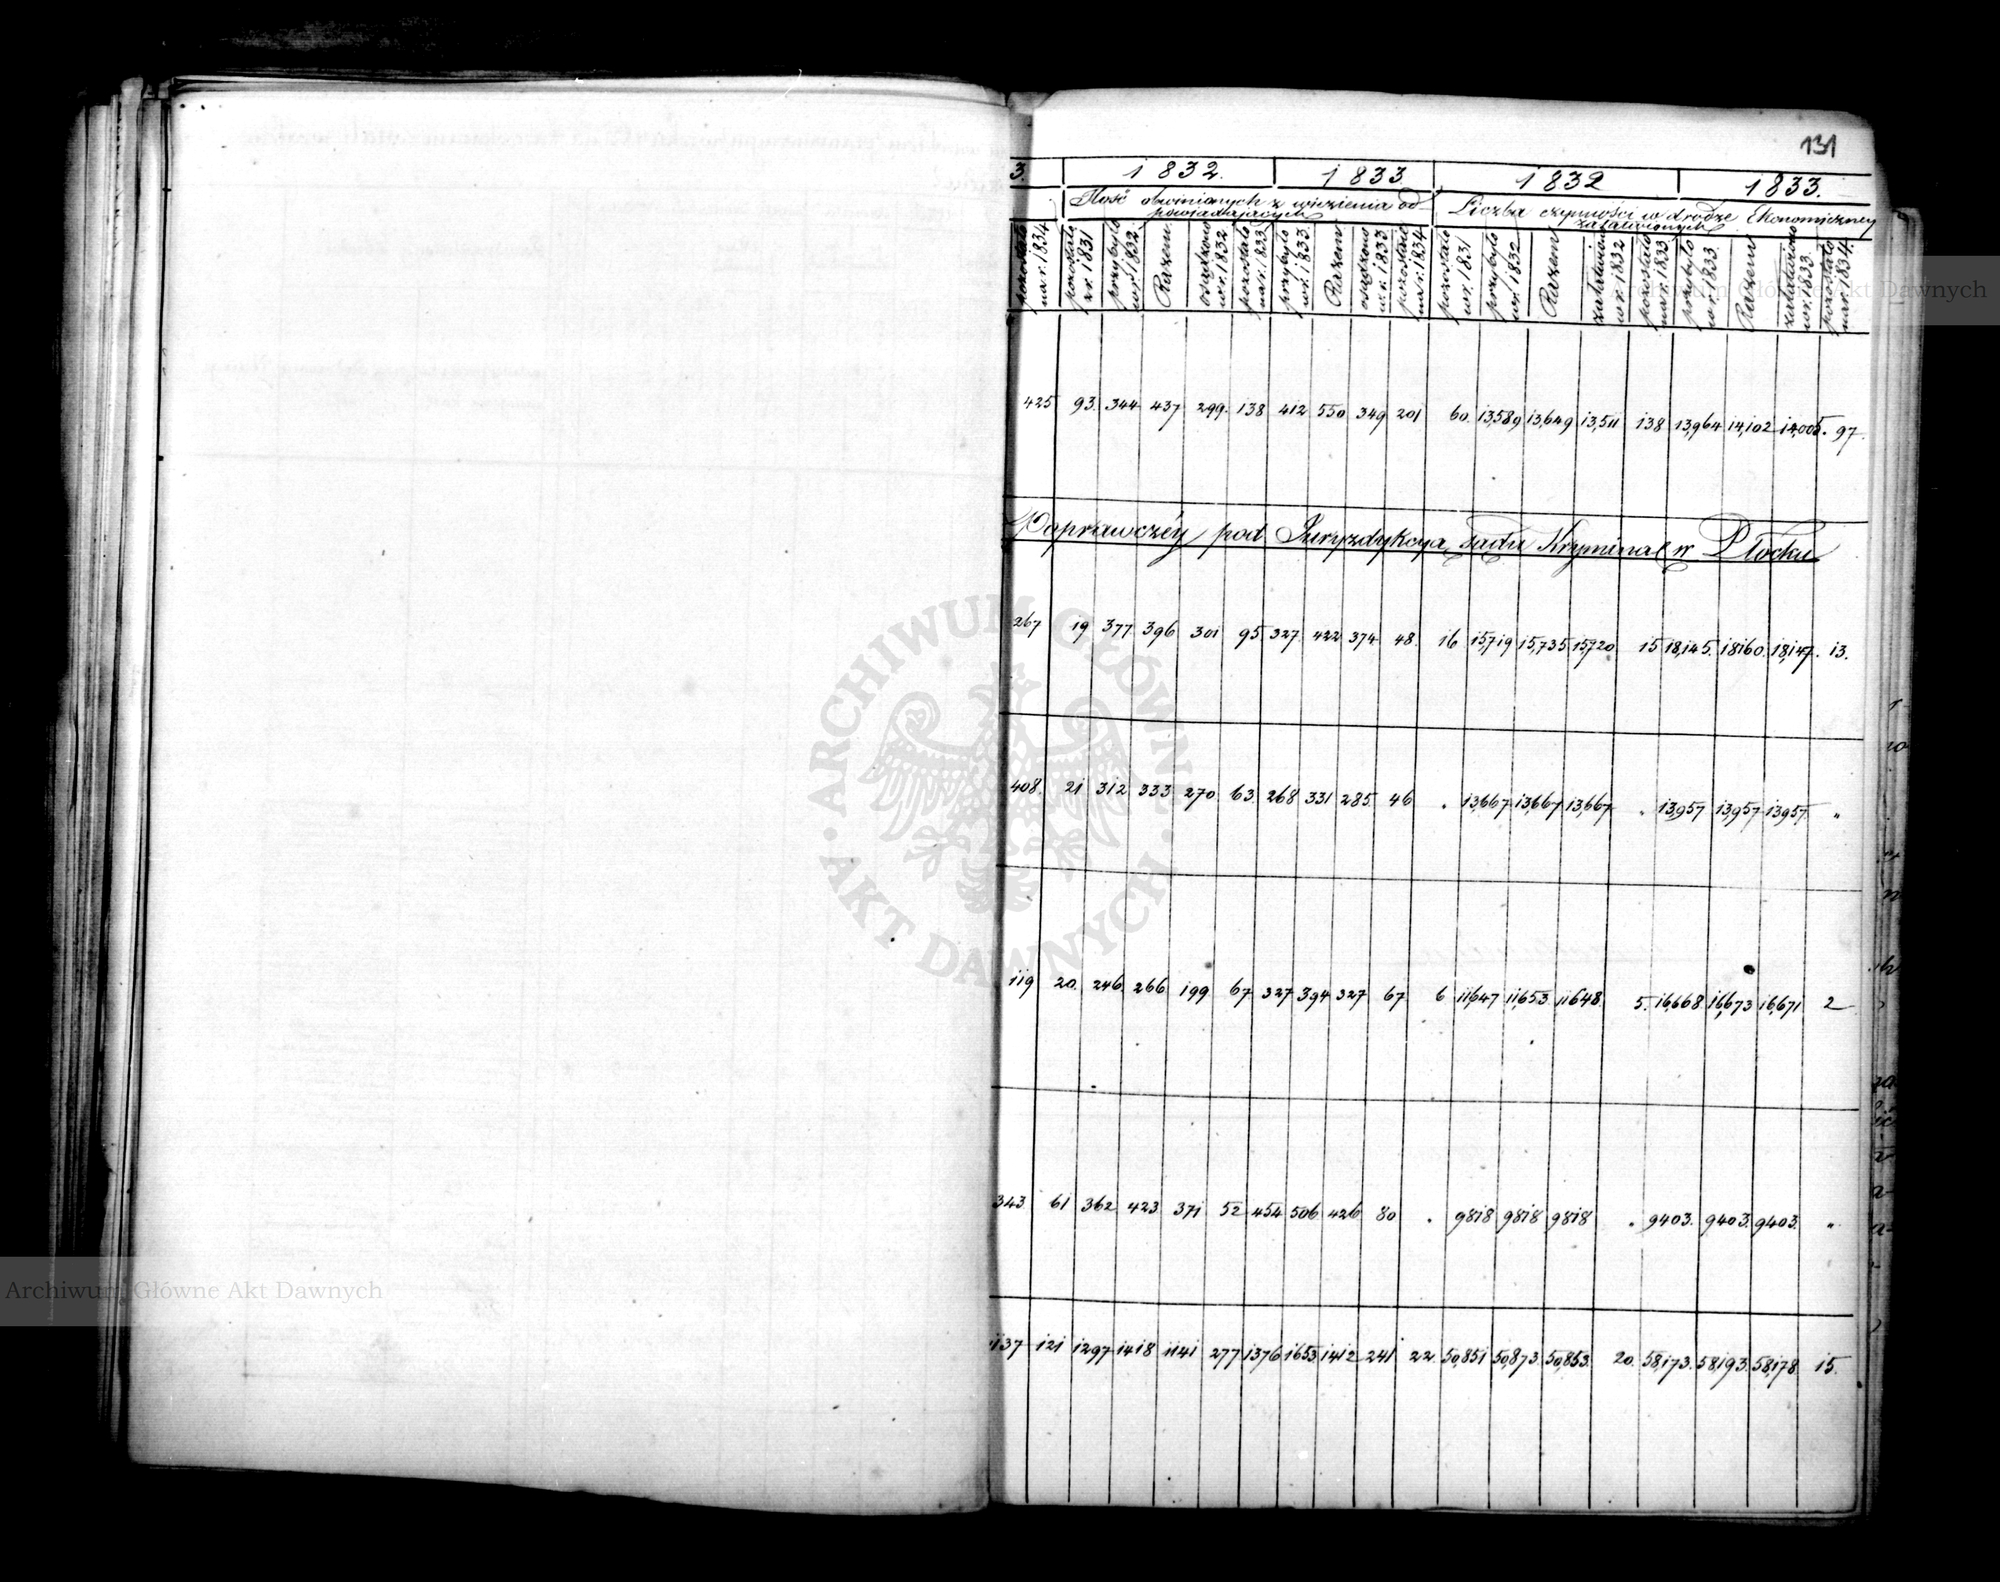 131
3. 1832. 1833. 1832 1833.
Ilość obwinionych z więzienia od-
powiadających Liczba czynności w drodze Ekonomiczney
załatwionych
pozostało na r. 1834 | pozostało z r. 1831 | przybyło w r. 1832 | Razem | osądzono w r. 1832 | pozostało na r. 1833 | przybyło w r. 1833 | Razem | osądzono w r. 1833 | pozostało na r. 1834 | pozostało w r. 1831 | przybyło w r. 1832 | Razem | załatwiono w r. 1832 | pozostało na r. 1833 | przybyło w r. 1833. | Razem | załatwiono w r. 1833. | pozostało na r. 1834.
425 93. 344 437 299. 138 412 550 349 201 60. 13,589 13,649 13,511 138 13,964 14,102 14,005. 97.
Poprawczéy pod Juryzdykcyą Sądu Kryminal w Płocku
267 19 377 396 301 95 327. 422 374 48. 16 15,719 15,735 15,720 15 18,145. 18160. 18,147. 13.
408. 21 312 333 270. 63. 268 331 285. 46 „ 13,667 13,667 13,667 „ 13,957 13,957 13,957. „
119 20. 246. 266 199 67 327 394 327 67 6 11,647 11,653 11648. 5. 16,668 16,673 16,671 2
343 61 362 423 371 52 454 506 426 80 „ 9818 9818 9818 „ 9403. 9403. 9403. „
1137 121 1297 1418 1141 277 1376 1653 1412 241 22. 50,851 50,873. 50,853. 20. 58,173. 58,193. 58,178 15.
ARCHIWUM GŁÓWNE
AKT DAWNYCH
Archiwum Główne Akt Dawnych
Archiwum Główne Akt Dawnych